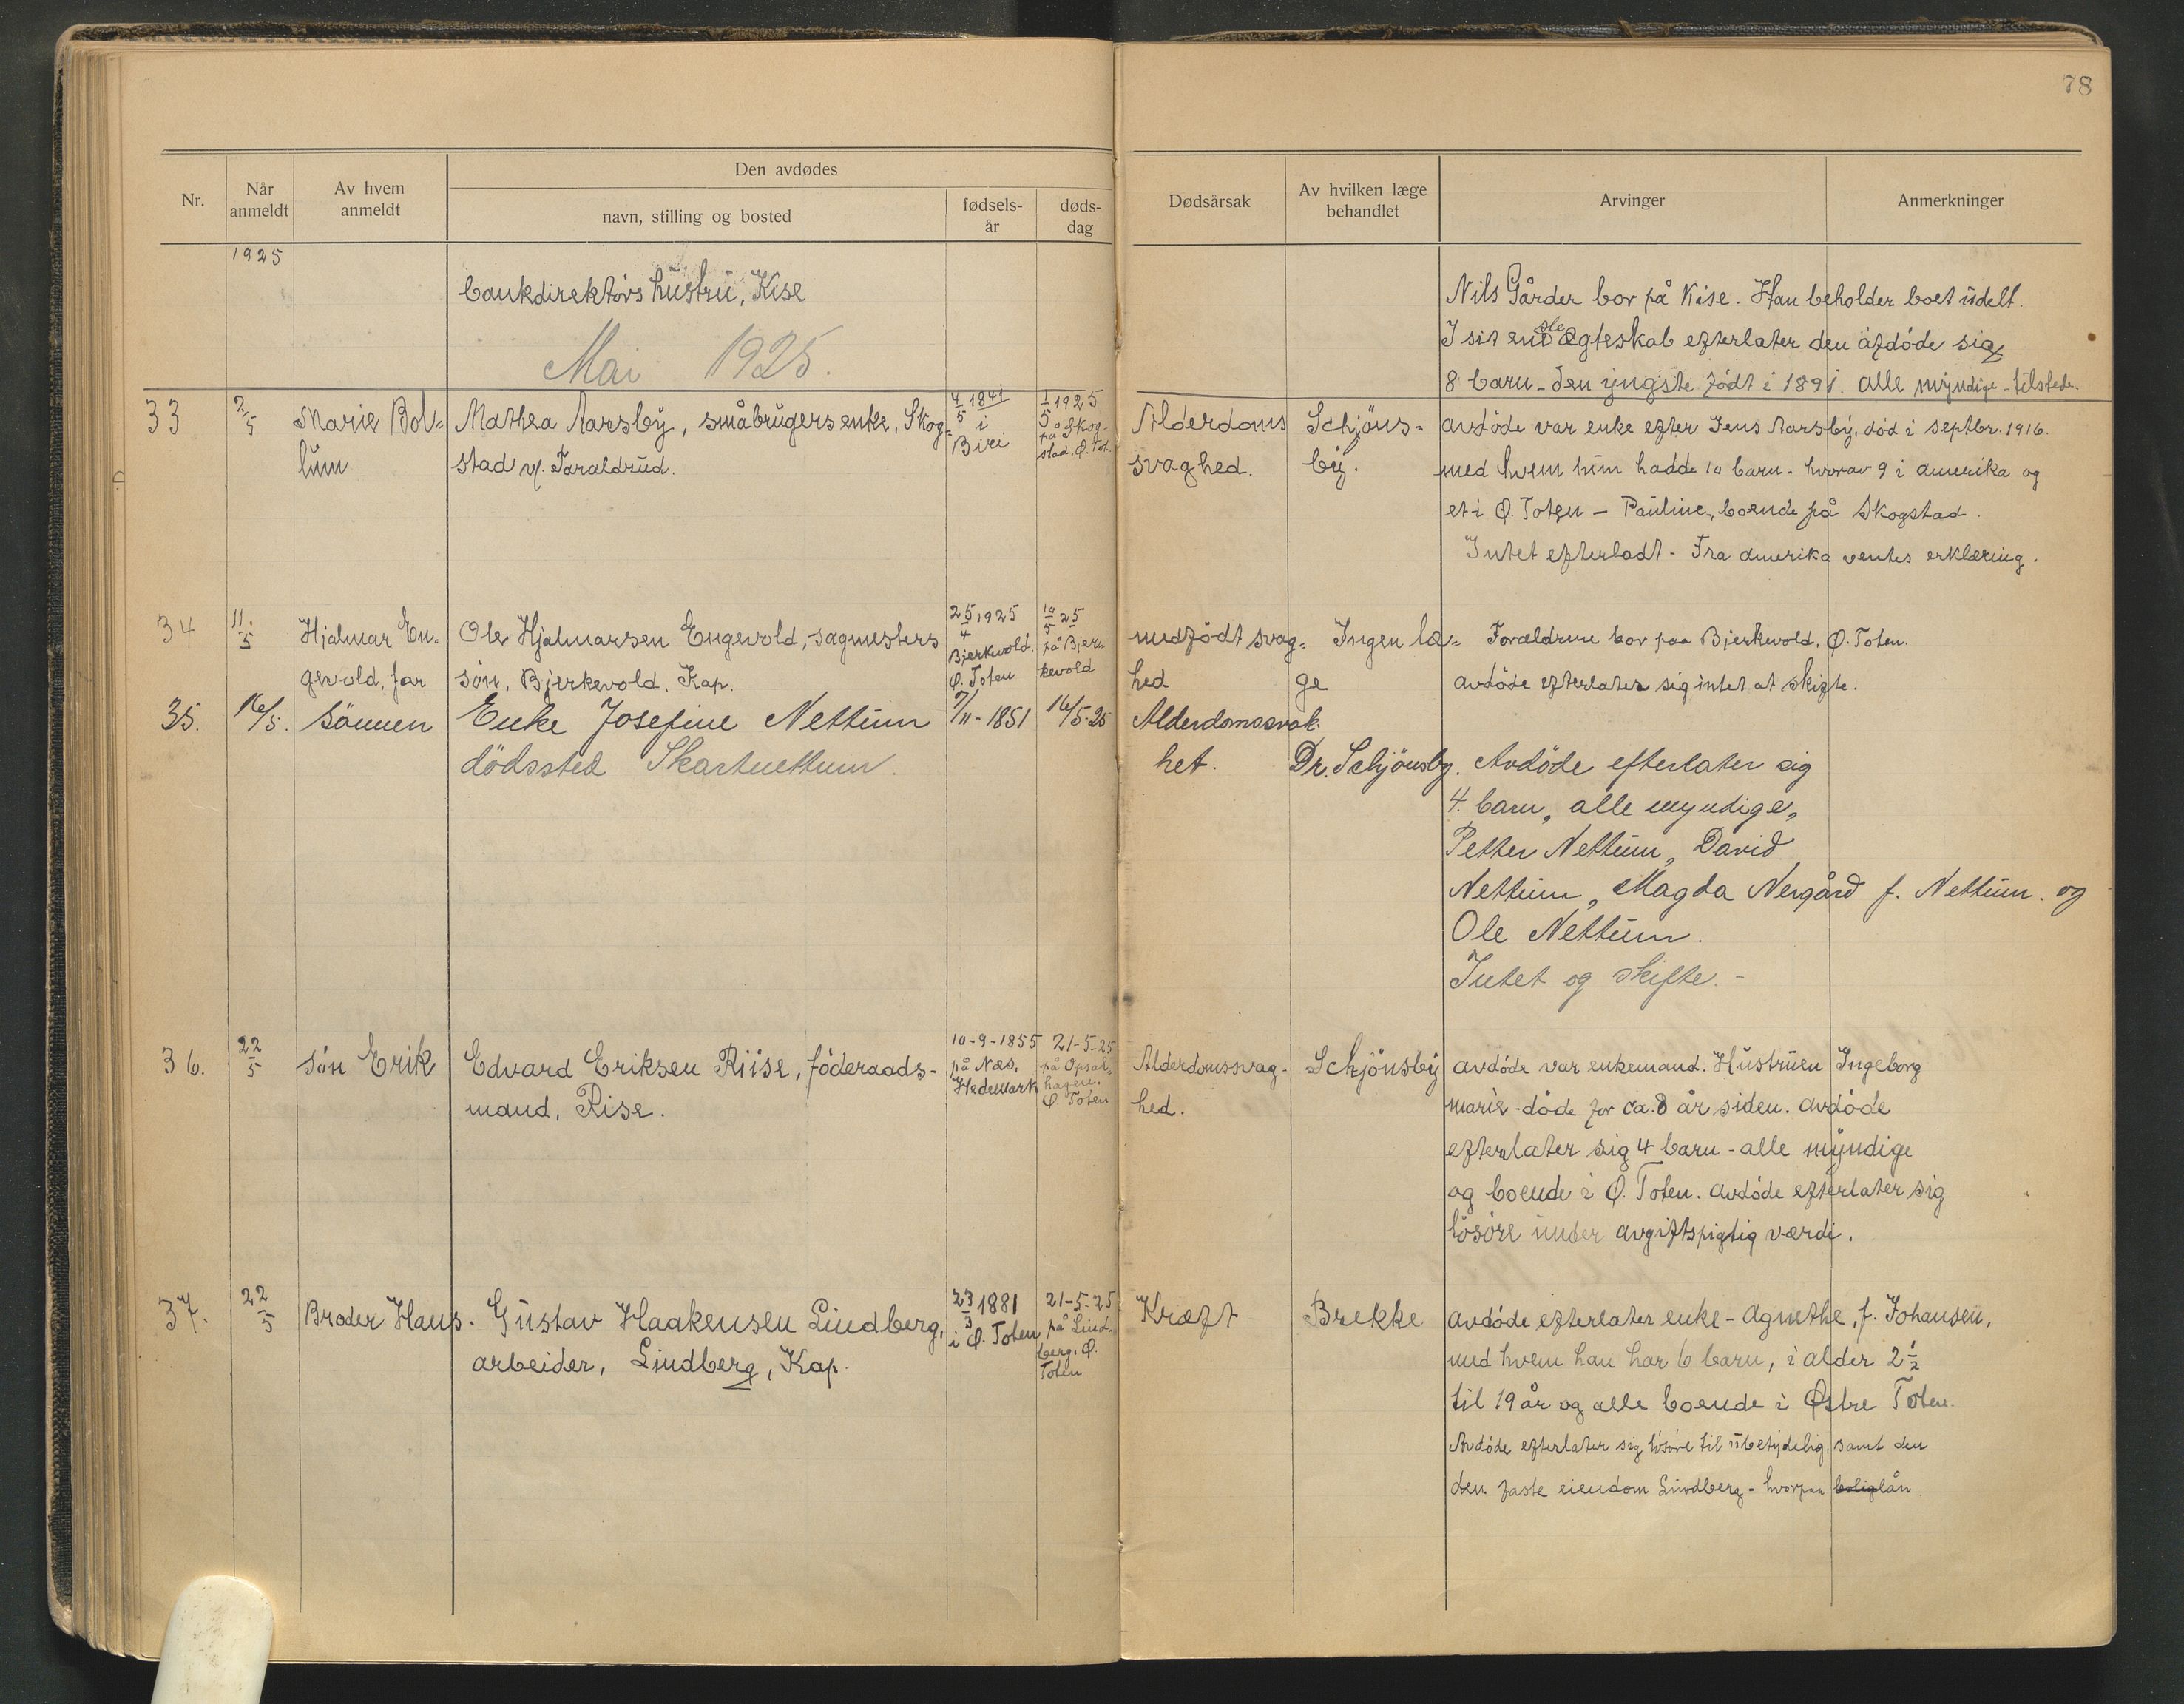 78
Nr.
Når anmeldt
Av hvem anmeldt
Den avdødes
navn, stilling og bosted
fødsels-år
døds-dag
Dødsårsak
Av hvilken læge behandlet
Arvinger
Anmerkninger
1925
bankdirektørs hustru, Kise
Nils Gårder bor på Kise. Han beholder boet udelt.
I sit eneste ægteskab efterlater den afdøde sig
8 barn - den yngste født i 1891. alle myndige - tilstede.
Mai 1925.
33
7/5
Marie Bol-
lum
Mathea Aarsby, småbrugers enke, Skog-
stad v/ Faraldrud.
4/5 1841
i
Biri
1/5 1925
på Skog-
stad, Ø. Tot.
Alderdoms
svaghed.
Schjøns-
by.
avdøde var enke efter Jens Aarsby, død i septbr. 1916.
med hvem hun hadde 10 barn - hvorav 9 i amerika og
et i Ø. Toten - Pauline, boende på Skogstad.
Intet efterladt - Fra amerika ventes erklæring.
34
11/5
Hjalmar En-
gevold, far
Ole Hjalmarsen Engevold, sagmesters
søn, Bjerkevold. Kap.
25/4 1925
Bjerkvold.
Ø. Toten
10/5 25
på Bjer-
kevold
medfødt svag-
hed.
Ingen læ-
ge
Forældrene bor paa Bjerkevold, Ø. Toten.
avdøde efterlater sig intet at skifte.
35.
16/5.
sönnen
Enke Josefine Nettum
dödssted Skartnettum.
7/11 - 1851
16/5-25
Alderdomssvak-
het.
Dr. Schjönsby.
Avdöde efterlater sig
4. barn, alle myndige,
Petter Nettum, David
Nettum, Magda Nergård f. Nettum. og
Ole Nettum.
Intet og skifte. -
36.
22/5
søn Erik
Edvard Eriksen Riise, föderaads-
mand, Rise.
10-9-1855
på Næs,
Hedemark
21-5-25
på Opsal-
hagen.
Ø. Toten
Alderdomssvag-
hed.
Schjönsby
avdøde var enkemand. Hustruen Ingeborg
marie - døde for ca. 8 år siden. avdøde
efterlater sig 4 barn - alle myndige
og boende i Ø. Toten. avdøde efterlater sig
løsøre under avgiftspigtig værdi.
37.
22/5
Broder Hans.
Gustav Haakensen Lindberg,
arbeider, Lindberg, Kap.
23/3 1881
i Ø. Toten
21-5-25
på Lind-
berg. Ø.
Toten
Kræft
Brekke
avdøde efterlater enke - Agnethe, f. Johansen,
med hvem han har 6 barn, i alder 2 1/2
til 19 år og alle boende i Østre Toten.
Avdøde efterlater sig løsøre til ubetydelig, samt den
den faste eiendom Lindberg - hvorpaa boliglån.